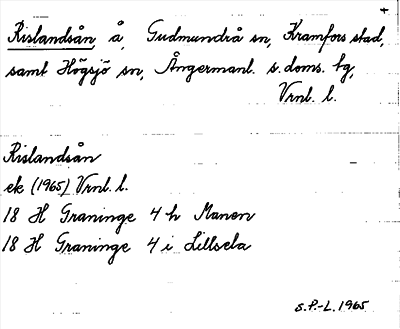 Rislandsån å, Gudmundrå sn, Kramfors stad,
samt Högsjö sn, Ångermanl. s. doms. tg,
Vrnl. l.
Rislandsån
ek (1965) Vrnl. l.
18 H Graninge 4 h Manen
18 H Graninge 4 i Lillsela
S.P.-L. 1965